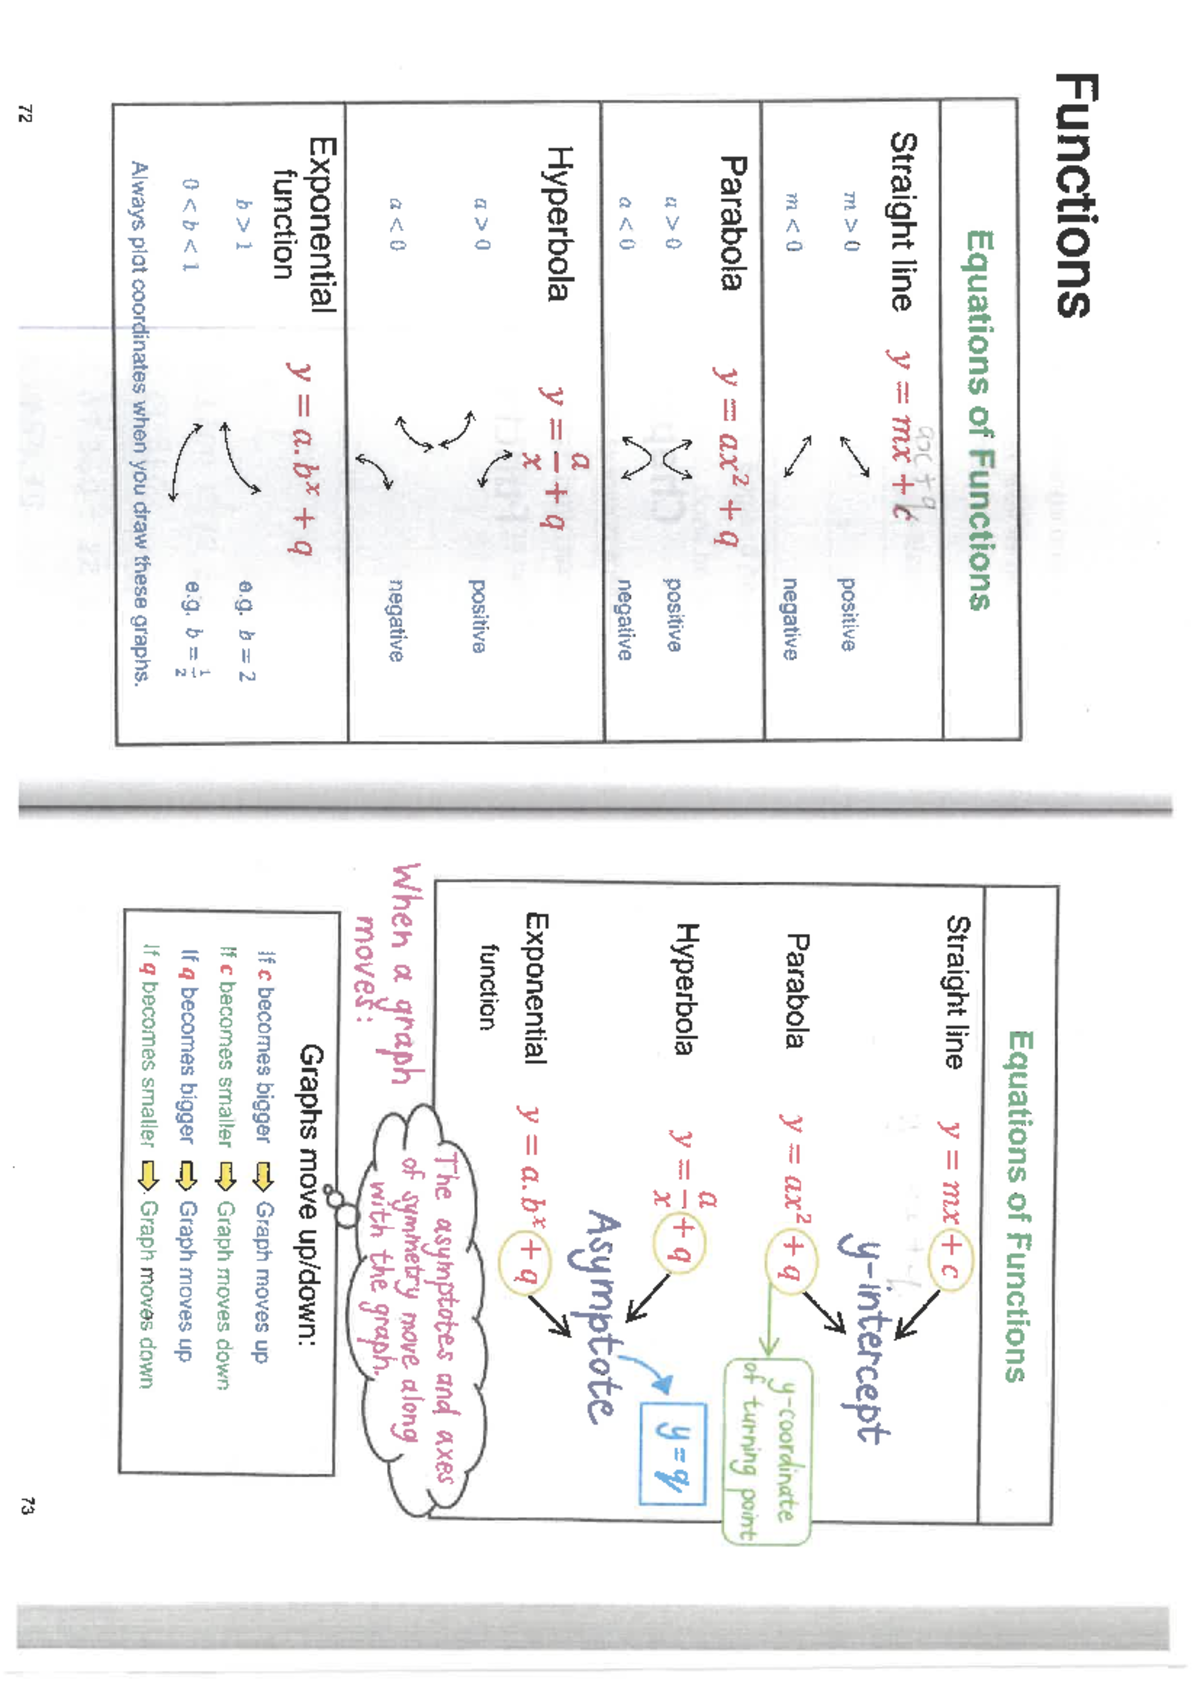 Functions
Equations of Functions
Straight line y = mx + c
ax + q
m > 0 positive
m < 0 negative
Parabola y = ax² + q
a > 0 positive
a < 0 negative
Hyperbola y = a/x + q
a > 0 positive
a < 0 negative
Exponential function y = a.bˣ + q
b > 1 e.g. b = 2
0 < b < 1 e.g. b = 1/2
Always plot coordinates when you draw these graphs.
72
Equations of Functions
Straight line y = mx + c
y-intercept
Parabola y = ax² + q
y-coordinate
of turning point
Hyperbola y = a/x + q
Asymptote
y = q
Exponential function y = a.bˣ + q
When a graph
moves:
The asymptotes and axes
of symmetry move along
with the graph.
Graphs move up/down:
If c becomes bigger Graph moves up
If c becomes smaller Graph moves down
If q becomes bigger Graph moves up
If q becomes smaller Graph moves down
73